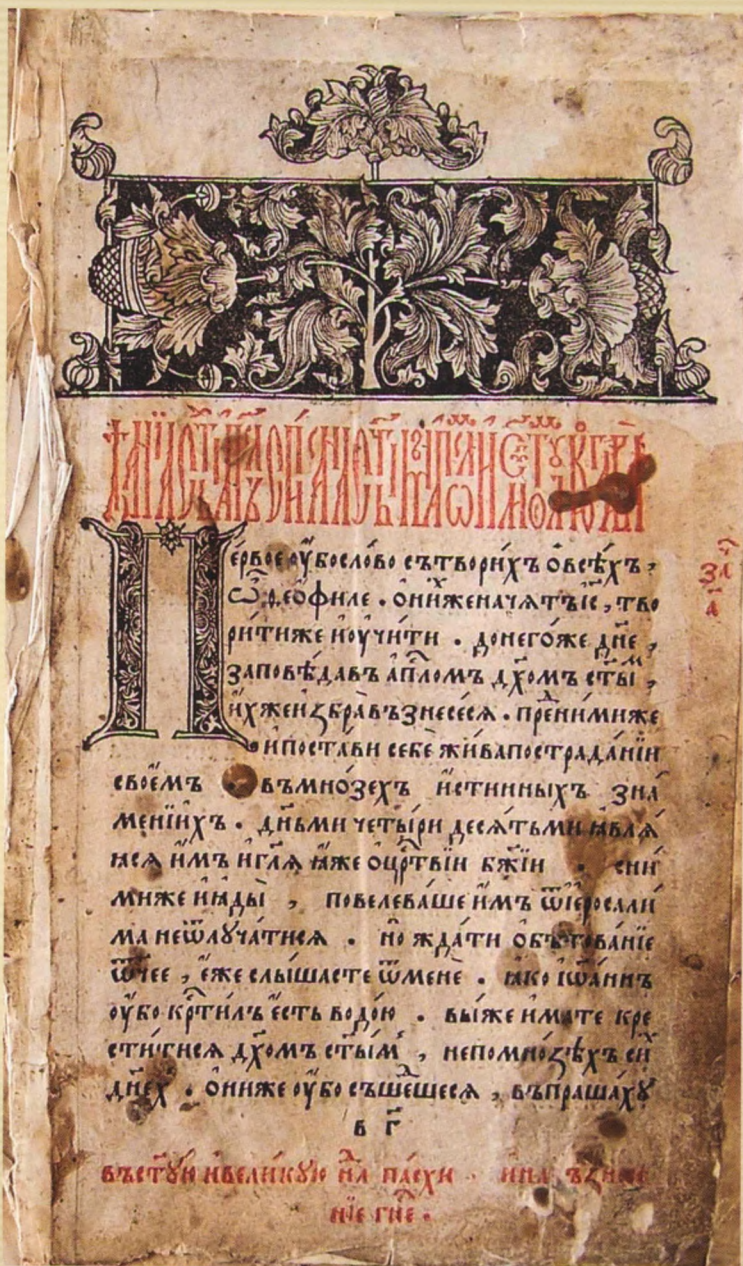 ервое оу҆́бо сло́во сътвори́хъ ѻ҆ всѣ́хъ,
ѽ ѳео́филе . ѻ҆ ни́хже начя́тъ і҆с҃, тво
ри́тиже и҆ оучи́ти . донего́же дн҃е ,
заповѣ́давъ а҆пⷭ҇ломъ дх҃омъ ст҃ы́ⷨ ,
и҆́хже и҆збра̀ възнесе́ся . пре́дними же
и҆ поста́ви себѐ жи́ва по страда́нїи
свое́мъ . въ мно́зехъ и҆́стинныхъ зна́
менїихъ . дн҃ьми четы́ри десять́ми ꙗ҆вля́
ꙗся и҆̀мъ и҆ гл҃я ꙗ҆́же ѻ҆ црⷭ҇твїи бж҃їи . сни́
миже и҆ ꙗ҆ды̀ , повелева́ше и҆̀мъ ѿ і҆еросали́
ма не ѿлуча́тися . но жда́ти ѻ҆бѣтова́нїе
ѿч҃ее , е҆́же слы́шасте ѿ менѐ . ꙗ҆́ко і҆ѡа́ннъ
оу҆́бо крⷭ҇ти́лъ е҆́сть водо́ю . вы́же и҆́мате кре
сти́тися дх҃омъ ст҃ы́мъ , не по мно́зѣхъ си́хъ
дн҃ехъ . ѻ҆ниже оу҆́бо съше́дшеся , въпраша́ху
в г҃
въ ст҃у́ю и҆ вели́кую нⷣлю па́схи
нїе гн҃е .
за̑
а҃